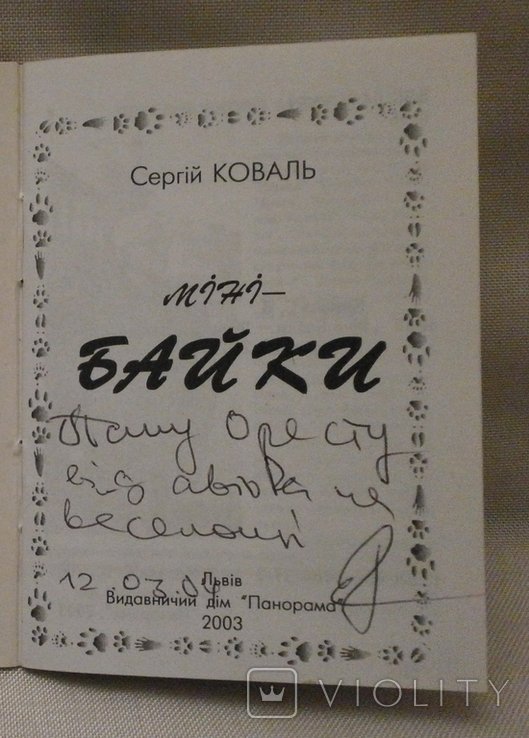 Сергій КОВАЛЬ
міні–
БАЙКИ
Пану Оресту
від автора на
веселощі
12 03 04
Львів
Видавничий дім "Панорама"
2003
VIOLITY